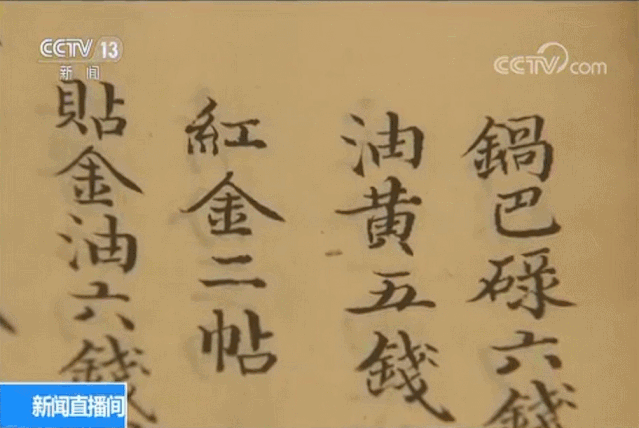 CCTV 13
新闻
CCTV.com
鍋巴碌六錢
油黄五錢
紅金二帖
貼金油六錢
新闻直播间